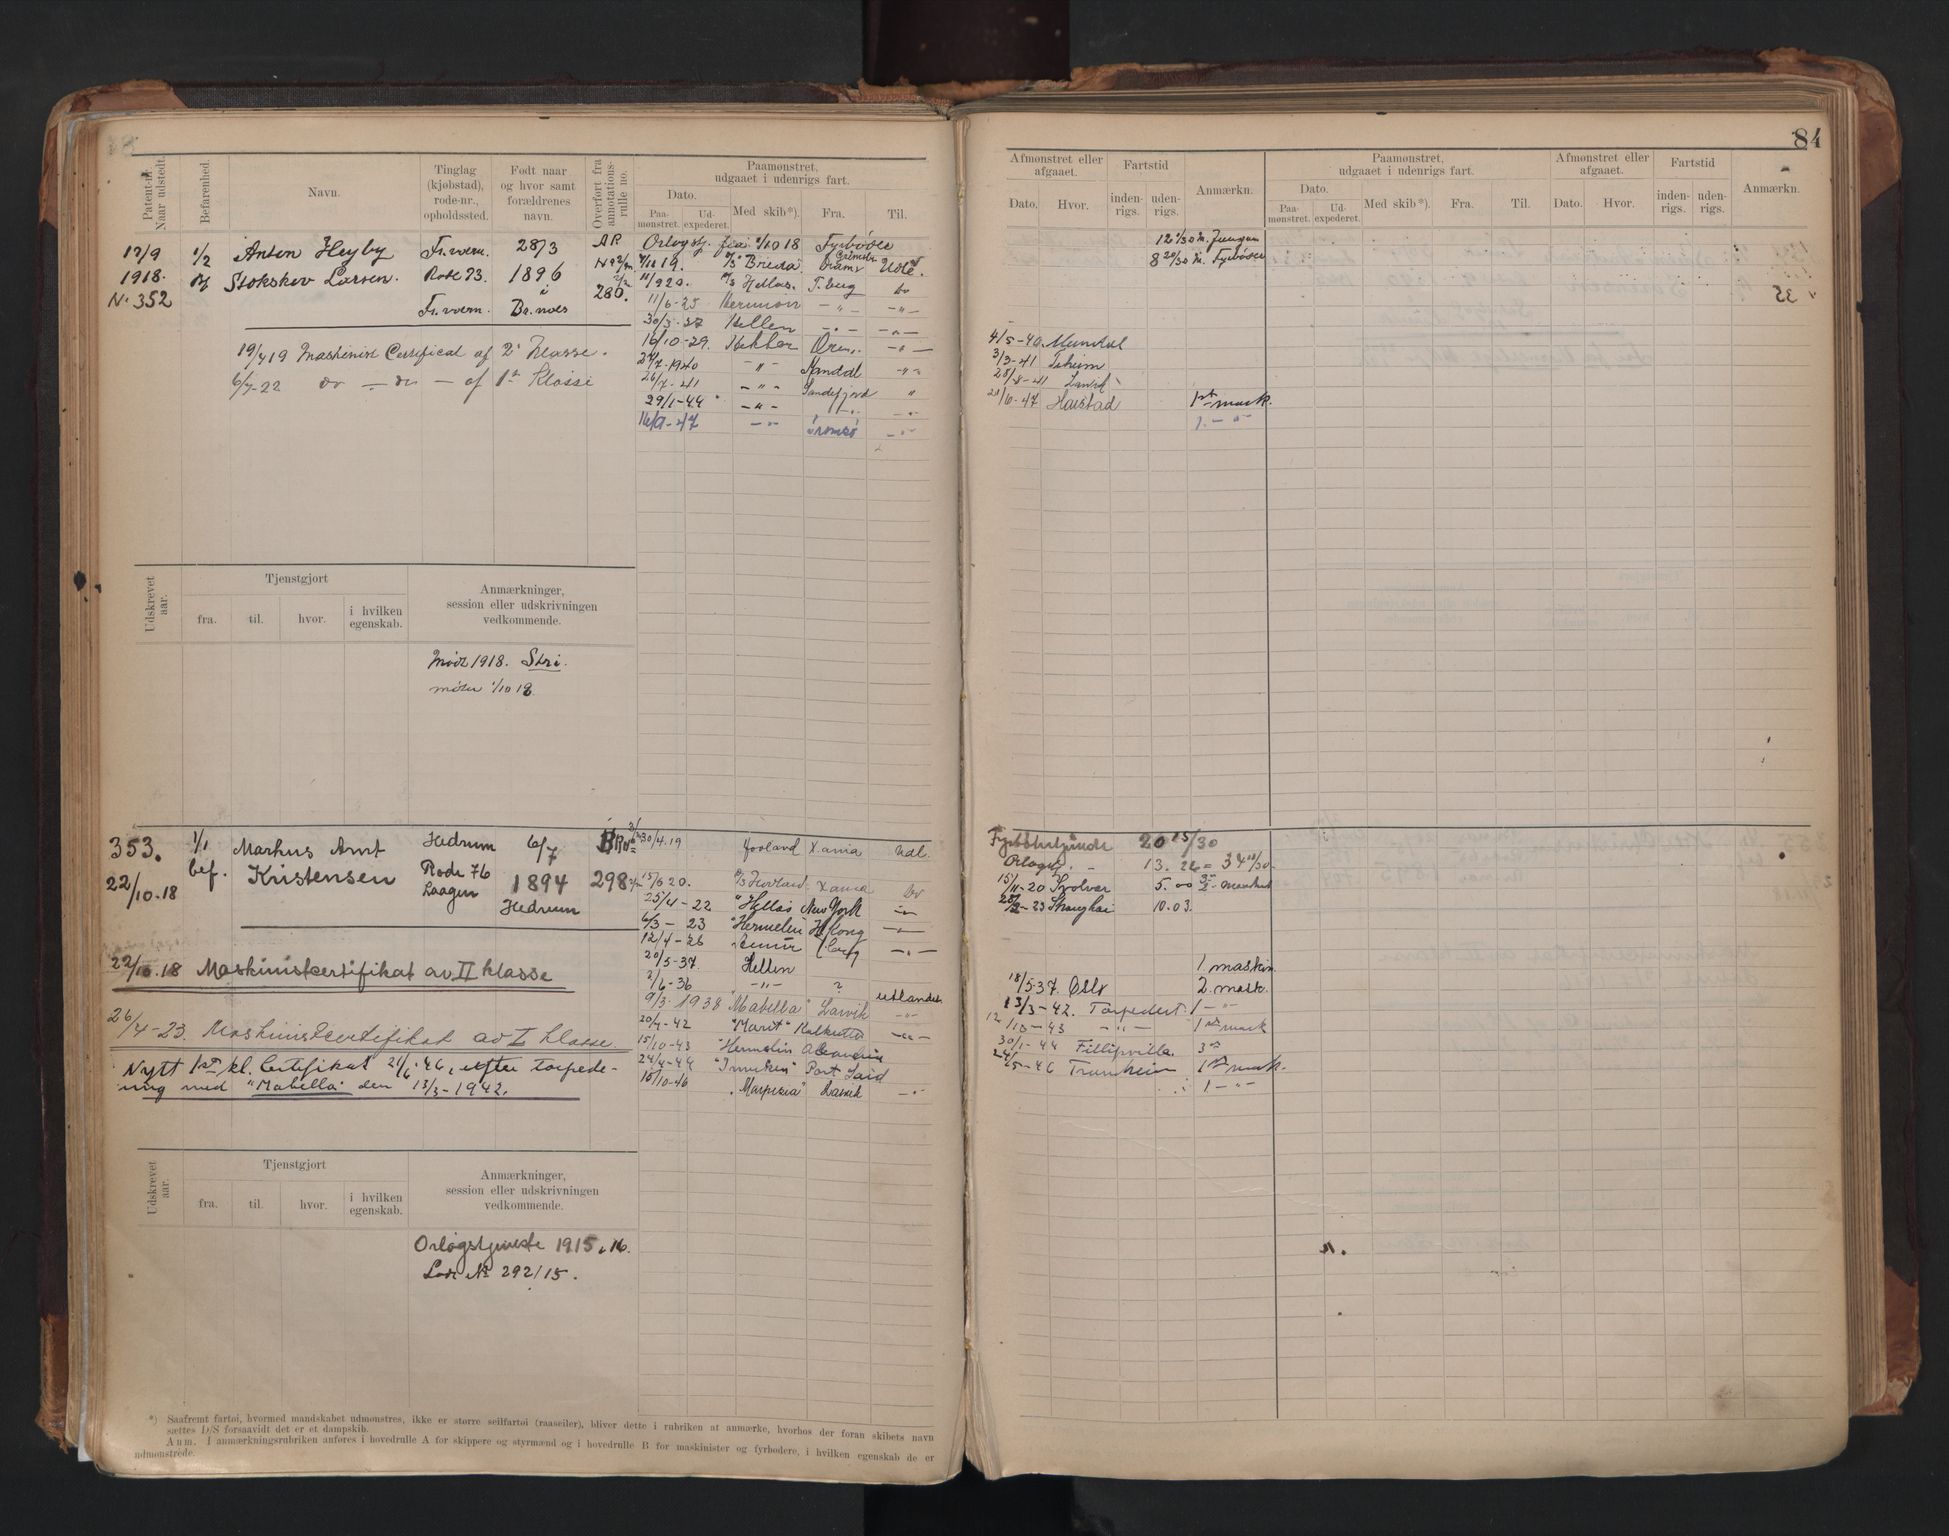 84
Patent-nr. Naar udstedt.
Befarenhed.
Navn.
Tinglag (kjøbstad), rode-nr., opholdssted.
Født naar og hvor samt forældrenes navn.
Overført fra annotations-rulle no.
Paamønstret, udgaaet i udenrigs fart.
Dato.
Paa-mønstret.
Ud-expederet.
Med skib*).
Fra.
Til.
17/9 1/2 Anton Heyby Fr.værn. 28/3 AR
1918. Stokskov Larsen. Rode 23. 1896
No 352 i 280.
Fr.værn. Br.næs
19/7 19 Maskinist Certifikat af 2. Klasse.
6/7-22 do — do — af 1st Klasse
Orlogstj. fra 1/10 18 Fyrbøder
Breda
D/S Hellas. T.berg do
11/6-25 Hermion — " — — " —
30/3-27 Hellen — " — — " —
16/10-29. Hektor — " —
— " — Mandal — " —
26/7-41 — " — Sandefjord "
29/1-44 — " — — " —
16/9-47 — " — Tromsø — " —
Udskrevet aar.
Tjenstgjort
fra.
til.
hvor.
i hvilken egenskab.
Anmærkninger, session eller udskrivningen vedkommende.
Mødt 1918. Skri.
møder 1/10 18.
353. 1/1 Markus Amt Hedrum 6/7
22/10-18 bef. Kristensen Rode 76 1894 298
Laagen Hedrum
22/10.18 Maskinistcertifikat av II klasse
26/4-23. Maskinistcertifikat av I klasse.
Nytt 1ste kl. Certifikat 21/6-46, efter torpede-
ring med "Mabella" den 13/3-1942.
30/4.19 Hovland X.ania Udl.
15/6 20. D/S Hovland X.ania Do
25/4-22 "Hellas New York — " —
6/3-23 "Hermelin H.Kong — " —
12/4-26 — " —
20/5-37. Hellen
2/6-36 — " — ?
9/3-1938 "Mabella" Larvik utlandet
20/7-42 "Marit" Kalkutta — " —
15/10-43 "Hermelin
24/4-44 Port Said
15/10-46 Larvik — " —
Udskrevet aar.
Tjenstgjort
fra.
til.
hvor.
i hvilken egenskab.
Anmærkninger, session eller udskrivningen vedkommende.
Orlogstjeneste 1915 & 16.
Lodt No 292/15.
*) Saafremt fartøi, hvormed mandskabet udmønstres, ikke er større seilfartøi (raaseiler), bliver dette i rubriken at anmærke, hvorhos der foran skibets navn
sættes D/S forsaavidt det er et dampskib.
Anm. I anmærkningsrubriken anføres i hovedrulle A for skippere og styrmænd og i hovedrulle B for maskinister og fyrbødere, i hvilken egenskab de er
udmønstrede.
Afmønstret eller afgaaet.
Dato.
Hvor.
Fartstid
inden-rigs.
uden-rigs.
Anmærkn.
Paamønstret, udgaaet i udenrigs fart.
Dato.
Paa-mønstret.
Ud-expederet.
Med skib*).
Fra.
Til.
Afmønstret eller afgaaet.
Dato.
Hvor.
Fartstid
inden-rigs.
uden-rigs.
Anmærkn.
8 20/30 m. Fyrbøder
4/5-40
3/3-41
28/8-41 Larvik
21/6-47 Harstad 1st mask.
1. — " —
20 15/30
Orlogstj. — 13. 26 = 34 11/30
15/11-20 Svolvær 5.00
28/2-23 Shanghai 10.03.
1 maskin
18/5-37. Oslo 2. mask.
13/3-42. Torpedert 1 — " —
12/10-43 — " — 1ste mask
30/1-44 Fillipville. 3
24/5-46 Trondheim 1ste mask.
1 — " —